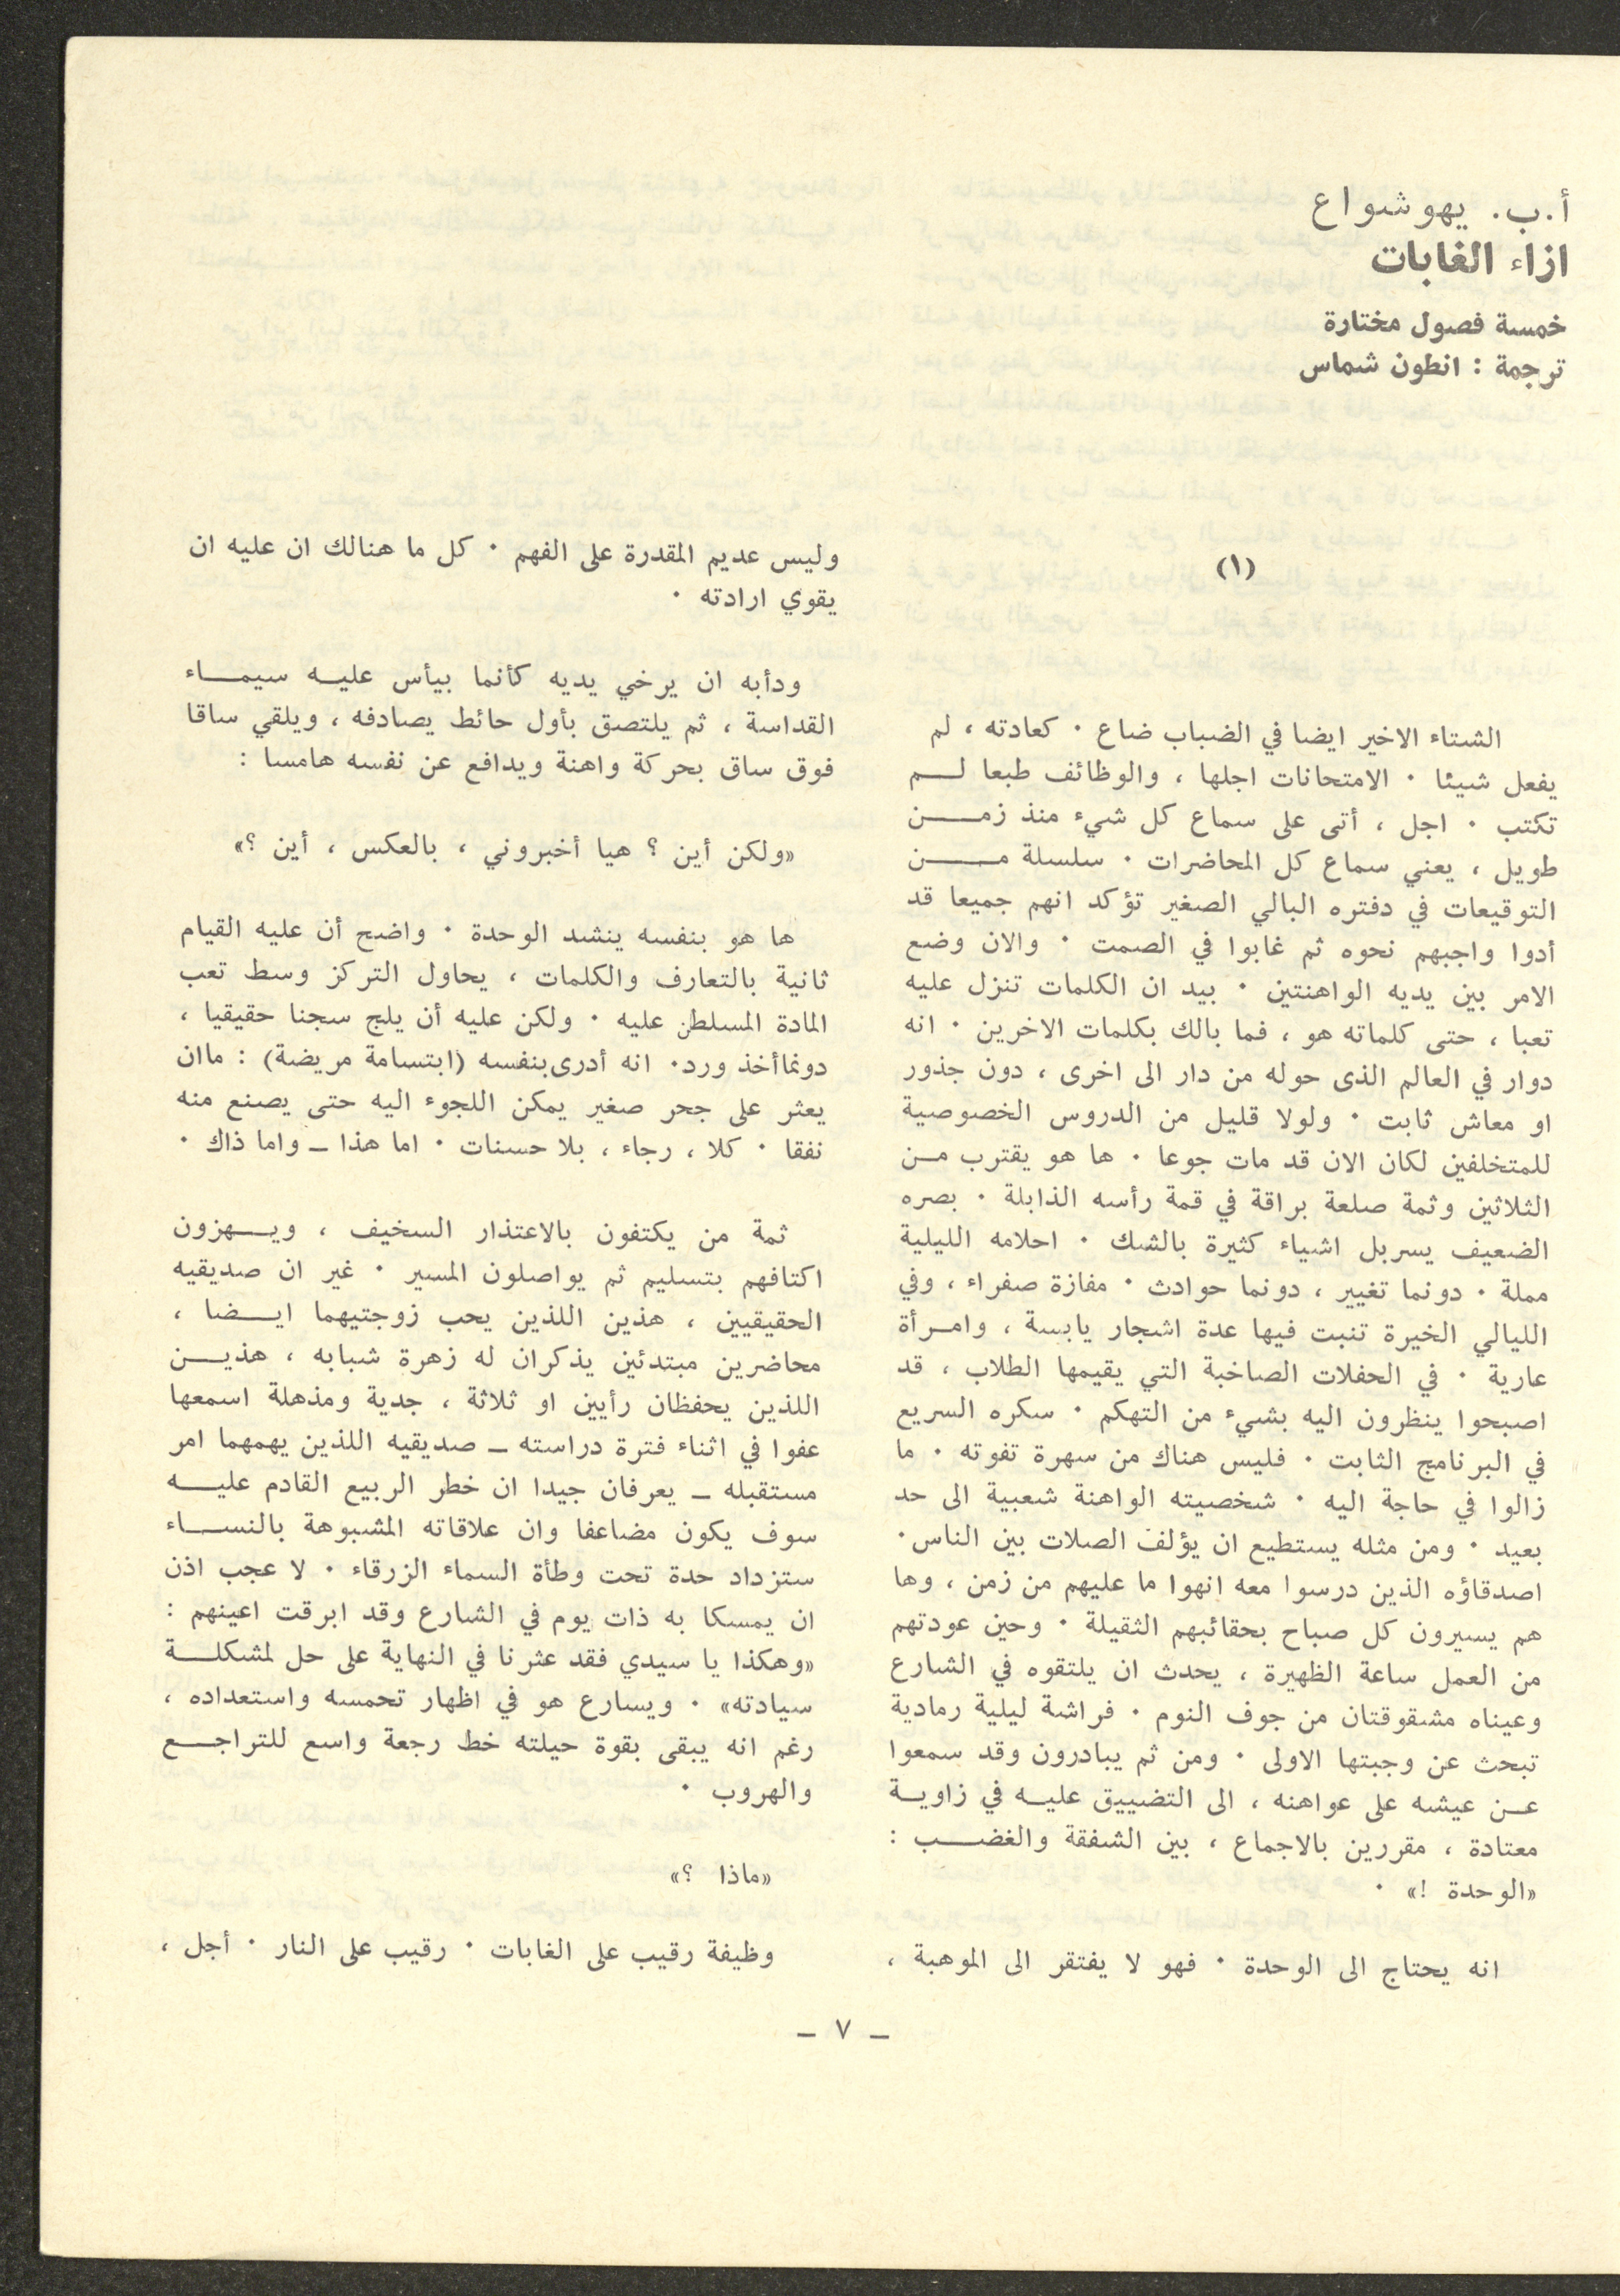 أ.ب. يهوشواع
ازاء الغابات
خمسة فصول مختارة
ترجمة : انطون شماس
(١)
الشتاء الاخير ايضا في الضباب ضاع ٠ كعادته ، لم
يفعل شيئا ٠ الامتحانات اجلها ، والوظائف طبعا لم
تكتب ٠ اجل ، أتى على سماع كل شيء منذ زمن
طويل ، يعني سماع كل المحاضرات ٠ سلسلة من
التوقيعات في دفتره البالي الصغير تؤكد انهم جميعا قد
أدوا واجبهم نحوه ثم غابوا في الصمت ٠ والان وضع
الامر بين يديه الواهنتين ٠ بيد ان الكلمات تنزل عليه
تعبا ، حتى كلماته هو ، فما بالك بكلمات الاخرين ٠ انه
دوار في العالم الذى حوله من دار الى اخرى ، دون جذور
او معاش ثابت ٠ ولولا قليل من الدروس الخصوصية
للمتخلفين لكان الان قد مات جوعا ٠ ها هو يقترب من
الثلاثين وثمة صلعة براقة في قمة رأسه الذابلة ٠ بصره
الضعيف يسربل اشياء كثيرة بالشك ٠ احلامه الليلية
مملة ٠ دونما تغيير ، دونما حوادث ٠ مفازة صفراء ، وفي
الليالي الخيرة تنبت فيها عدة اشجار يابسة ، وامرأة
عارية ٠ في الحفلات الصاخبة التي يقيمها الطلاب ، قد
اصبحوا ينظرون اليه بشيء من التهكم ٠ سكره السريع
في البرنامج الثابت ٠ فليس هناك من سهرة تفوته ٠ ما
زالوا في حاجة اليه ٠ شخصيته الواهنة شعبية الى حد
بعيد ٠ ومن مثله يستطيع ان يؤلف الصلات بين الناس٠
اصدقاؤه الذين درسوا معه انهوا ما عليهم من زمن ، وها
هم يسيرون كل صباح بحقائبهم الثقيلة ٠ وحين عودتهم
من العمل ساعة الظهيرة ، يحدث ان يلتقوه في الشارع
وعيناه مشقوقتان من جوف النوم ٠ فراشة ليلية رمادية
تبحث عن وجبتها الاولى ٠ ومن ثم يبادرون وقد سمعوا
عن عيشه على عواهنه ، الى التضييق عليه في زاوية
معتادة ، مقررين بالاجماع ، بين الشفقة والغضب :
«الوحدة !» ٠
انه يحتاج الى الوحدة ٠ فهو لا يفتقر الى الموهبة ،
وليس عديم المقدرة على الفهم ٠ كل ما هنالك ان عليه ان
يقوي ارادته ٠
ودأبه ان يرخي يديه كأنما بيأس عليه سيماء
القداسة ، ثم يلتصق بأول حائط يصادفه ، ويلقي ساقا
فوق ساق بحركة واهنة ويدافع عن نفسه هامسا :
«ولكن أين ؟ هيا أخبروني ، بالعكس ، أين ؟»
ها هو بنفسه ينشد الوحدة ٠ واضح أن عليه القيام
ثانية بالتعارف والكلمات ، يحاول التركز وسط تعب
المادة المسلطن عليه ٠ ولكن عليه أن يلج سجنا حقيقيا ،
دونماأخذ ورد٠ انه أدرى بنفسه (ابتسامة مريضة) : ماان
يعثر على جحر صغير يمكن اللجوء اليه حتى يصنع منه
نفقا ٠ كلا ، رجاء ، بلا حسنات ٠ اما هذا ـ واما ذاك ٠
ثمة من يكتفون بالاعتذار السخيف ، ويهزون
اكتافهم بتسليم ثم يواصلون المسير ٠ غير ان صديقيه
الحقيقيين ، هذين اللذين يحب زوجتيهما ايضا ،
محاضرين مبتدئين يذكران له زهرة شبابه ، هذين
اللذين يحفظان رأيين او ثلاثة ، جدية ومذهلة اسمعها
عفوا في اثناء فترة دراسته ـ صديقيه اللذين يهمهما امر
مستقبله ـ يعرفان جيدا ان خطر الربيع القادم عليه
سوف يكون مضاعفا وان علاقاته المشبوهة بالنساء
ستزداد حدة تحت وطأة السماء الزرقاء ٠ لا عجب اذن
ان يمسكا به ذات يوم في الشارع وقد ابرقت اعينهم :
«وهكذا يا سيدي فقد عثرنا في النهاية على حل لمشكلة
سيادته» ٠ ويسارع هو في اظهار تحمسه واستعداده ،
رغم انه يبقى بقوة حيلته خط رجعة واسع للتراجع
والهروب ٠
«ماذا ؟»
وظيفة رقيب على الغابات ٠ رقيب على النار ٠ أجل ،
ـ ٧ ـ